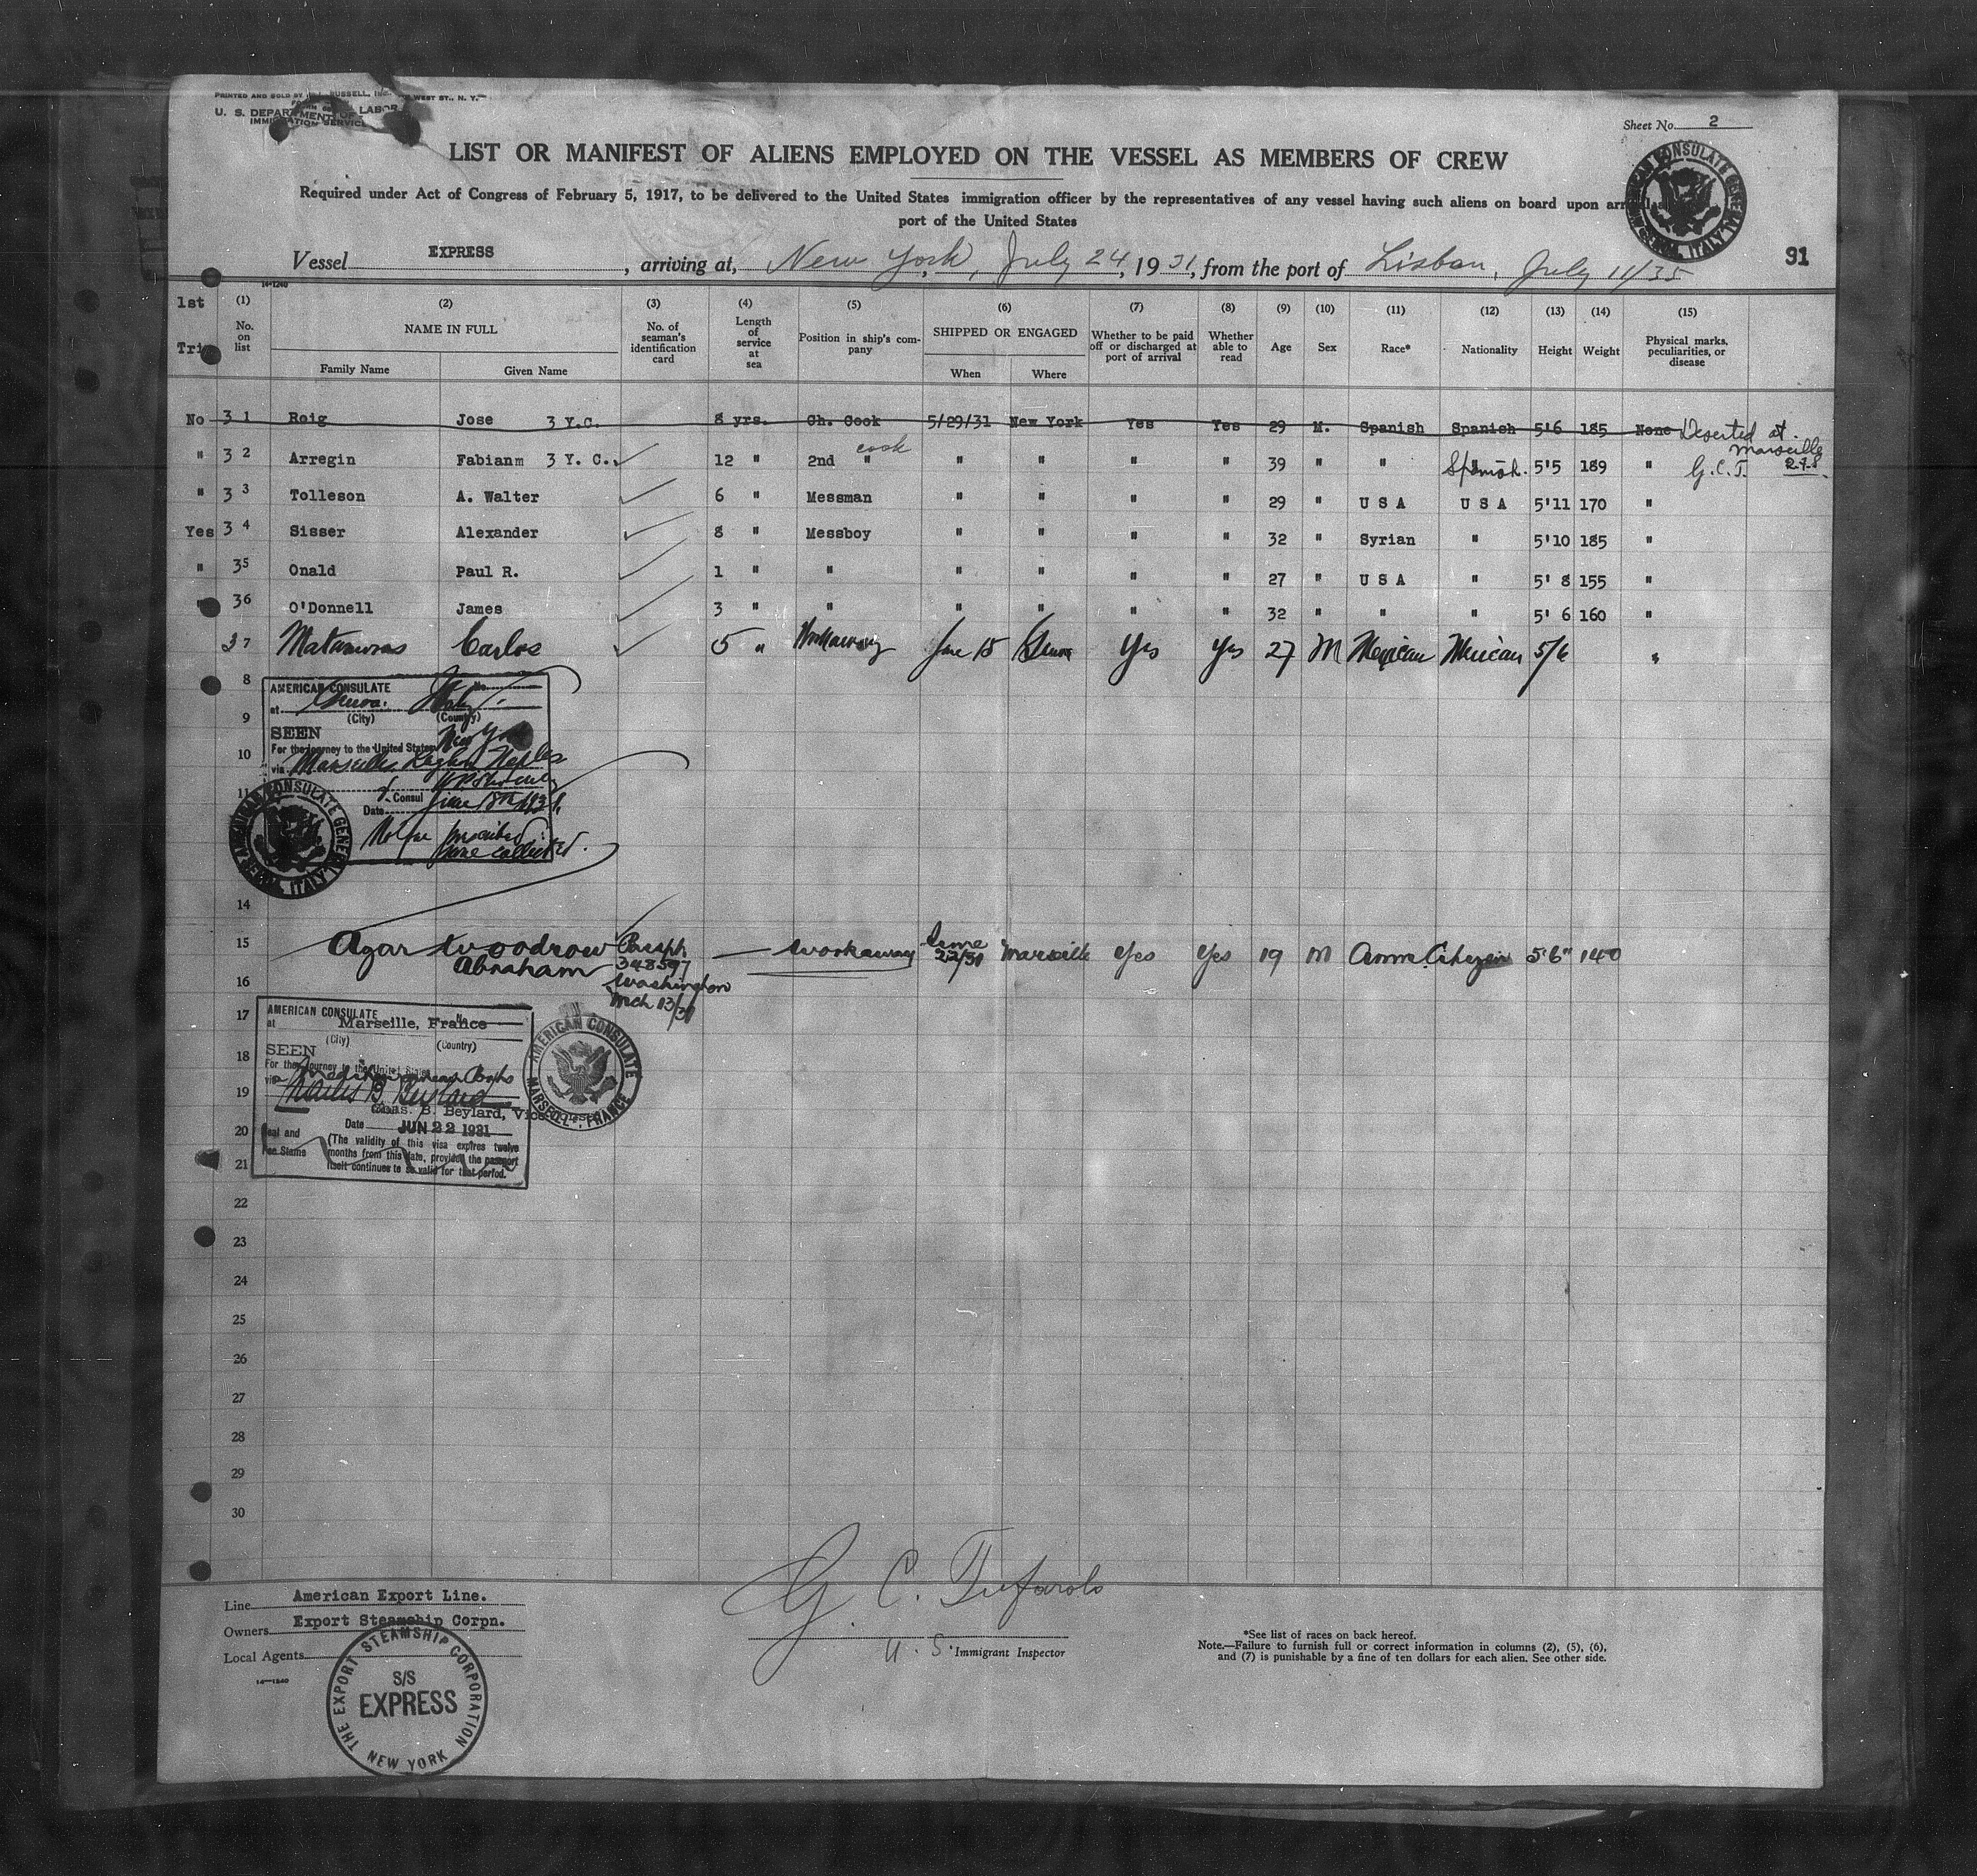 PRINTED AND SOLD BY RUSSELL, INC. WEST ST., N. Y.
FORM
U. S. DEPARTMENT OF LABOR
IMMIGRATION SERVICE
Sheet No. 2
LIST OR MANIFEST OF ALIENS EMPLOYED ON THE VESSEL AS MEMBERS OF CREW
Required under Act of Congress of February 5, 1917, to be delivered to the United States immigration officer by the representatives of any vessel having such aliens on board upon arrival at
port of the United States
AMERICAN CONSULATE GENERAL GENOA, ITALY
91
Vessel EXPRESS, arriving at, New York, July 24, 1931, from the port of Lisbon, July 11/35
14-1240
1st Trip
(1) No. on list
(2) NAME IN FULL Family Name Given Name
(3) No. of seaman's identification card
(4) Length of service at sea
(5) Position in ship's company
(6) SHIPPED OR ENGAGED When Where
(7) Whether to be paid off or discharged at port of arrival
(8) Whether able to read
(9) Age
(10) Sex
(11) Race*
(12) Nationality
(13) Height
(14) Weight
(15) Physical marks, peculiarities, or disease
No 31 Roig Jose 3 Y.C. 8 yrs. Ch. Cook 5/29/31 New York Yes Yes 29 M. Spanish Spanish 5'6 185 None Deserted at Marseille
" 32 Arregin Fabianm 3 Y. C. 12 " 2nd " cook " " " " 39 " " Spanish 5'5 189 " G.C.T.
" 33 Tolleson A. Walter 6 " Messman " " " " 29 " U S A U S A 5'11 170 "
Yes 34 Sisser Alexander 8 " Messboy " " " " 32 " Syrian " 5'10 185 "
" 35 Onald Paul R. 1 " " " " " " 27 " U S A " 5' 8 155 "
" 36 O'Donnell James 3 " " " " " " 32 " " " 5' 6 160 "
37 Matamoros Carlos 5 " Workaway June 18 Genoa Yes Yes 27 M Mexican Mexican 5/6 "
8
AMERICAN CONSULATE
at Genoa. Italy
(City) (Country)
9
SEEN
For the journey to the United States New York
10
via Marseilles Leghorn Naples
11
Consul
Date June 18th 1931
No fee prescribed
none collected.
AMERICAN CONSULATE GENERAL GENOA, ITALY
14
15 Agar Woodrow Abraham Passph 348597 Washington Mch 13/31 — Workaway June 22/31 Marseille Yes Yes 19 M Amn Citizen 5'6" 140
16
17
AMERICAN CONSULATE
at Marseille, France
(City) (Country)
18
SEEN
For the journey to the United States
via Mediterranean Ports
19
Charles B. Beylard
Chas. B. Beylard, Vice Consul
20
Date JUN 22 1931
Seal and
Fee Stamps
(The validity of this visa expires twelve
months from this date, provided the passport
itself continues to be valid for that period.
AMERICAN CONSULATE MARSEILLE, FRANCE
21
22
23
24
25
26
27
28
29
30
Line American Export Line.
Owners Export Steamship Corpn.
Local Agents
14-1240
THE EXPORT STEAMSHIP CORPORATION
S/S
EXPRESS
NEW YORK
G. C. Tufarolo
U. S. Immigrant Inspector
*See list of races on back hereof.
Note.—Failure to furnish full or correct information in columns (2), (5), (6),
and (7) is punishable by a fine of ten dollars for each alien. See other side.